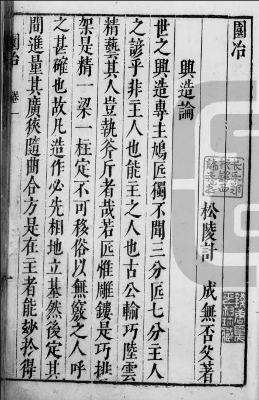 園冶
興造論
松陵計 成無否父著
世之興造專主鳩匠獨不聞三分匠七分主人
之諺乎非主人也能主之人也古公輸巧陸雲
精藝其人豈執斧斤者哉若匠惟雕鏤是巧排
架是精一梁一柱定不可移俗以無竅之人呼
之甚確也故凡造作必先相地立基然後定其
間進量其廣狹隨曲合方是在主者能妙於得
園冶 卷一